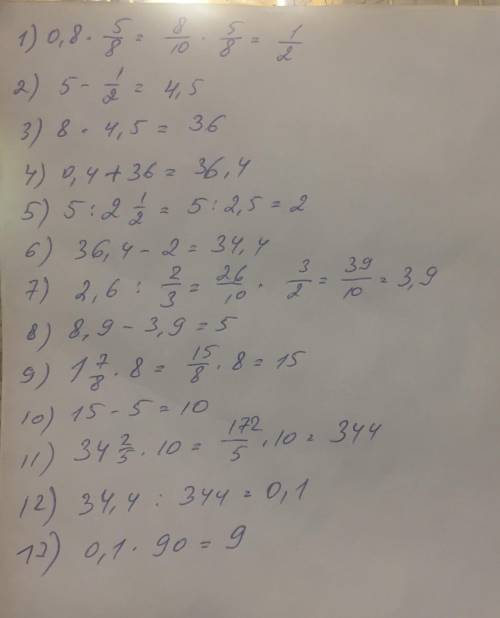 1) 0,8 · 5/8 = 8/10 · 5/8 = 1/2
2) 5 - 1/2 = 4,5
3) 8 · 4,5 = 36
4) 0,4 + 36 = 36,4
5) 5 : 2 1/2 = 5 : 2,5 = 2
6) 36,4 - 2 = 34,4
7) 2,6 : 2/3 = 26/10 · 3/2 = 39/10 = 3,9
8) 8,9 - 3,9 = 5
9) 1 7/8 · 8 = 15/8 · 8 = 15
10) 15 - 5 = 10
11) 34 2/5 · 10 = 172/5 · 10 = 344
12) 34,4 : 344 = 0,1
13) 0,1 · 90 = 9